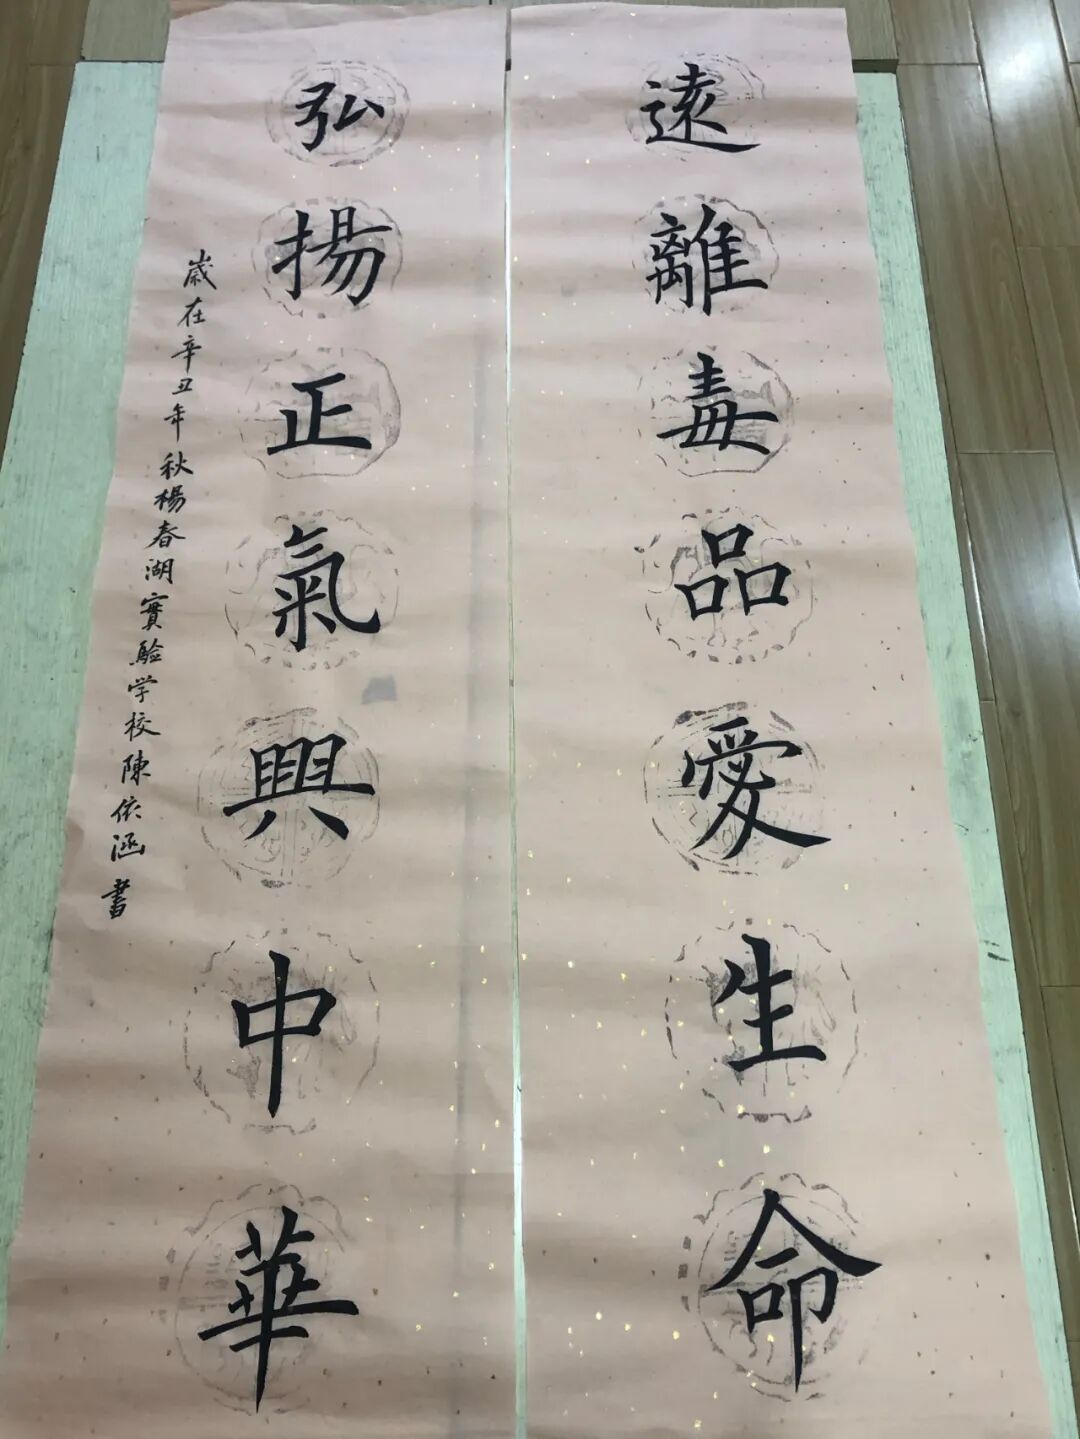 遠離毒品愛生命
弘揚正氣興中華
歲在辛丑年秋楊春湖實驗学校陳依涵書